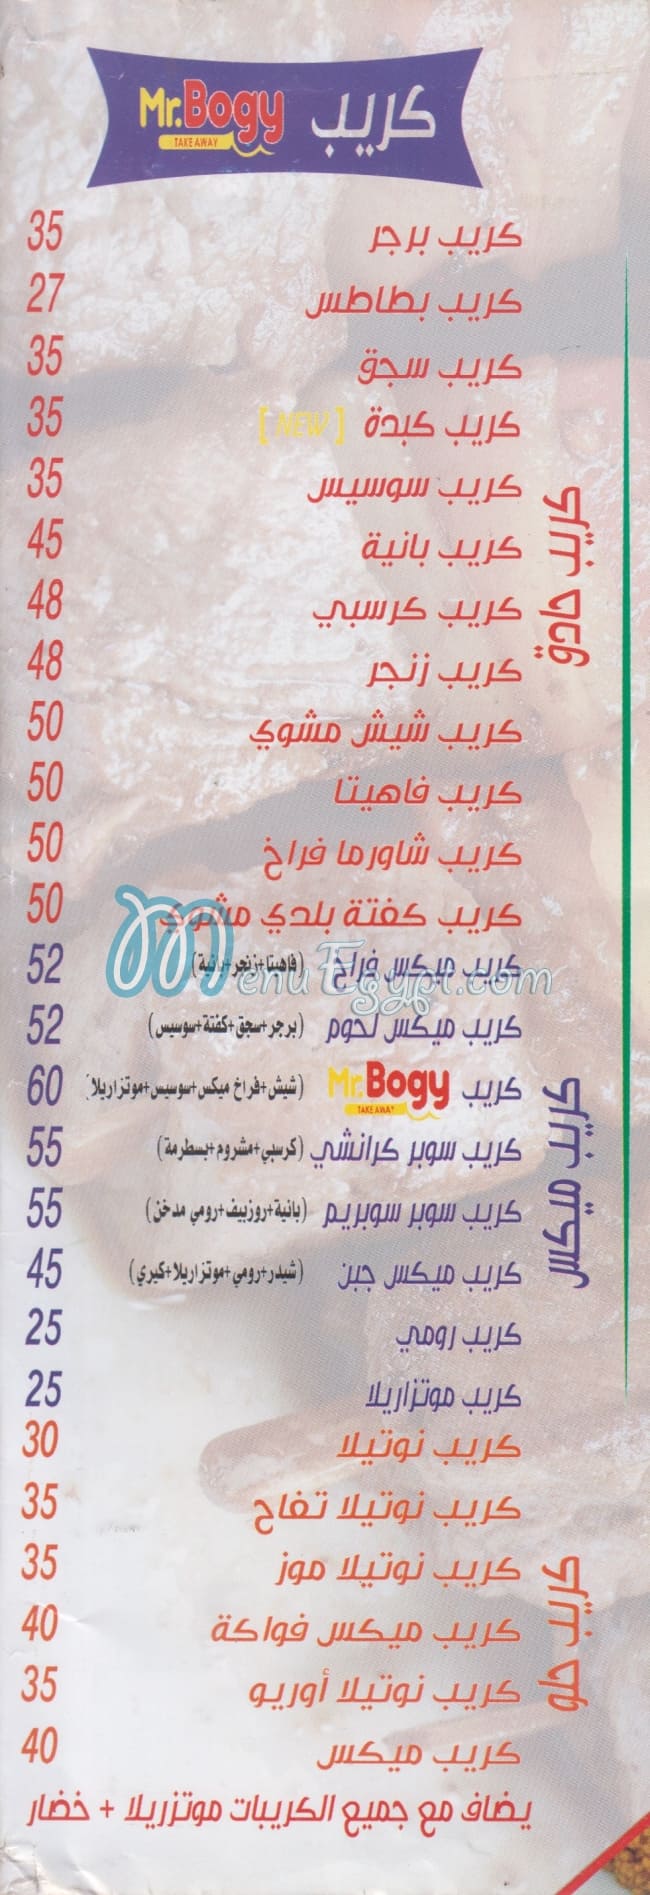 كريب Mr.Bogy
TAKE AWAY
كريب حادق
كريب برجر 35
كريب بطاطس 27
كريب سجق 35
كريب كبدة [NEW] 35
كريب سوسيس 35
كريب بانية 45
كريب كرسبي 48
كريب زنجر 48
كريب شيش مشوي 50
كريب فاهيتا 50
كريب شاورما فراخ 50
كريب كفتة بلدي مشوي 50
MenuEgypt.com
كريب ميكس
كريب ميكس فراخ (فاهيتا+زنجر+بانية) 52
كريب ميكس لحوم (برجر+سجق+كفتة+سوسيس) 52
كريب Mr.Bogy (شيش+فراخ ميكس+سوسيس+موتزاريلا) 60
TAKE AWAY
كريب سوبر كرانشي (كرسبي+مشروم+بسطرمة) 55
كريب سوبر سوبريم (بانية+روزبيف+رومي مدخن) 55
كريب ميكس جبن (شيدر+رومي+موتزاريلا+كيري) 45
كريب رومي 25
كريب موتزاريلا 25
كريب حلو
كريب نوتيلا 30
كريب نوتيلا تفاح 35
كريب نوتيلا موز 35
كريب ميكس فواكة 40
كريب نوتيلا أوريو 35
كريب ميكس 40
يضاف مع جميع الكريبات موتزريلا + خضار